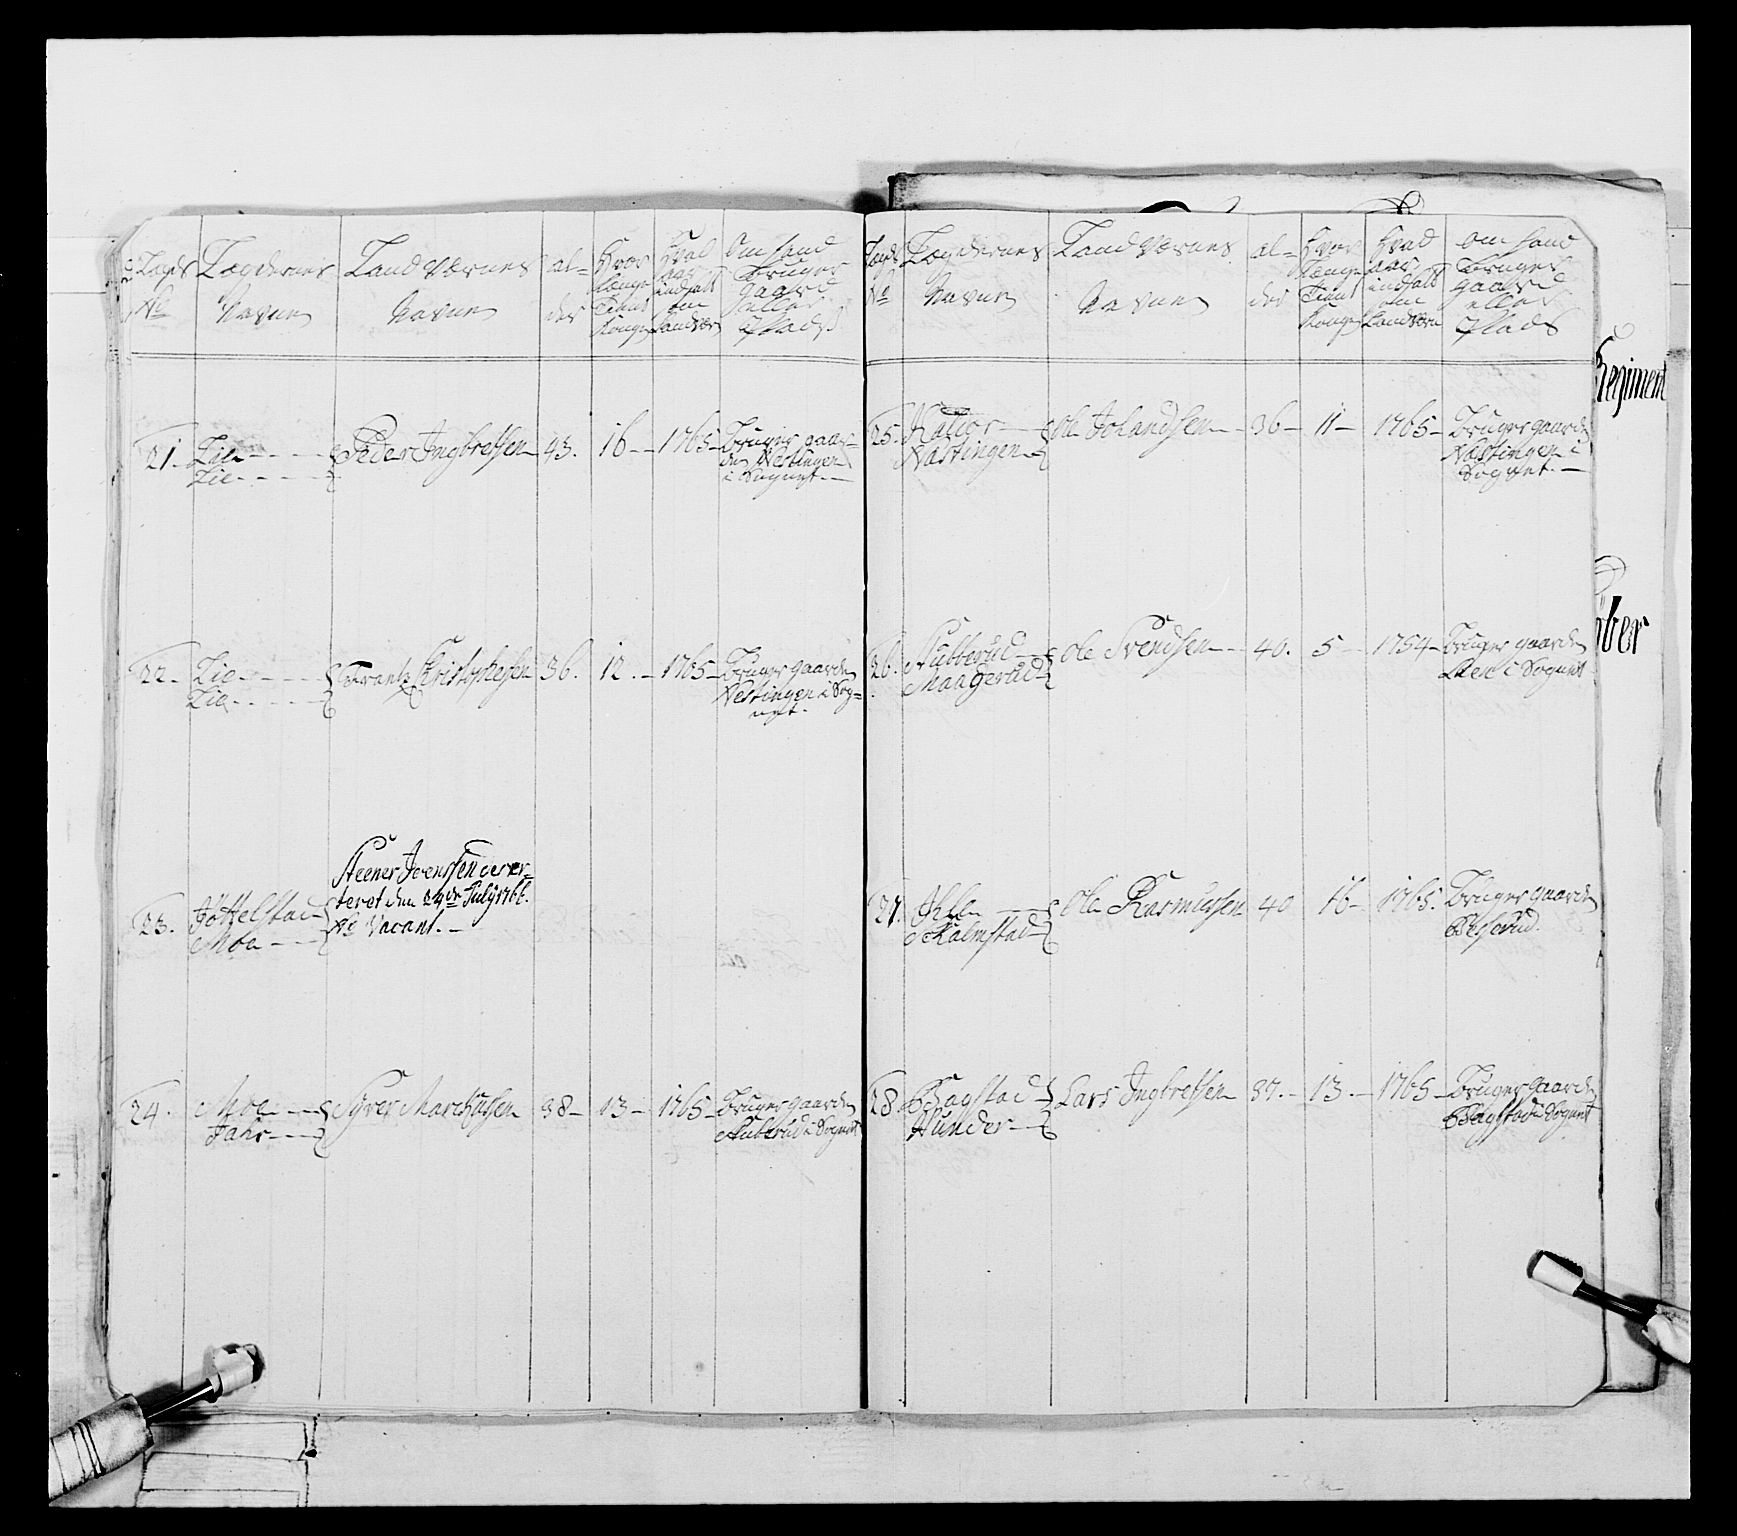 Lægds
No
Lægdernes
Navne
Land Værnes
Navne
al-
der
Hvor
længe
Tient
Konge
Hvad
aar
indsatt
om
Landværn
Om hand
bruger
gaard
eller
Plads
21. Lie
Lie
Peder Ingbretsen 43. 16 1765
Bruger gaar-
den Næstingen
i Sognet
22. Lie
Lie
Frantz Kristophersen 36. 12. 1765
Bruger gaarden
Nestingen i Sog=
net.
23. Jøttelstad
Moe
Steener Joenssen deser=
teret den 24de July 1766.
No Vacant.
24. Moe
Jahr
Syver Marchussen 38 13 1765
Bruger gaarden
Stuberud i Sognet
Lægds
No
Lægdernes
Navne
Land Værnes
Navne
al=
der
Hvor
længe
Tient
Konge
Hvad
aar
indsatt
om
Landværn
Om hand
bruger
gaard
eller
Plads
25.
Næstingen
Ole Jolandsen 36 11 1765
Bruger gaarden
Næstingen i
Sognet.
26. Stubberud
Maagerud
Ole Svendsen 40. 5 1754
Bruger gaarden
i Sognet
27.
Kalmstad
Ole Rasmussen 40 16 1765.
Bruger gaarden
28 Bagstad
Hunder
Lars Ingbretsen 37. 13. 1765
Bruger gaarden
Bagstad i Sognet
Regiment